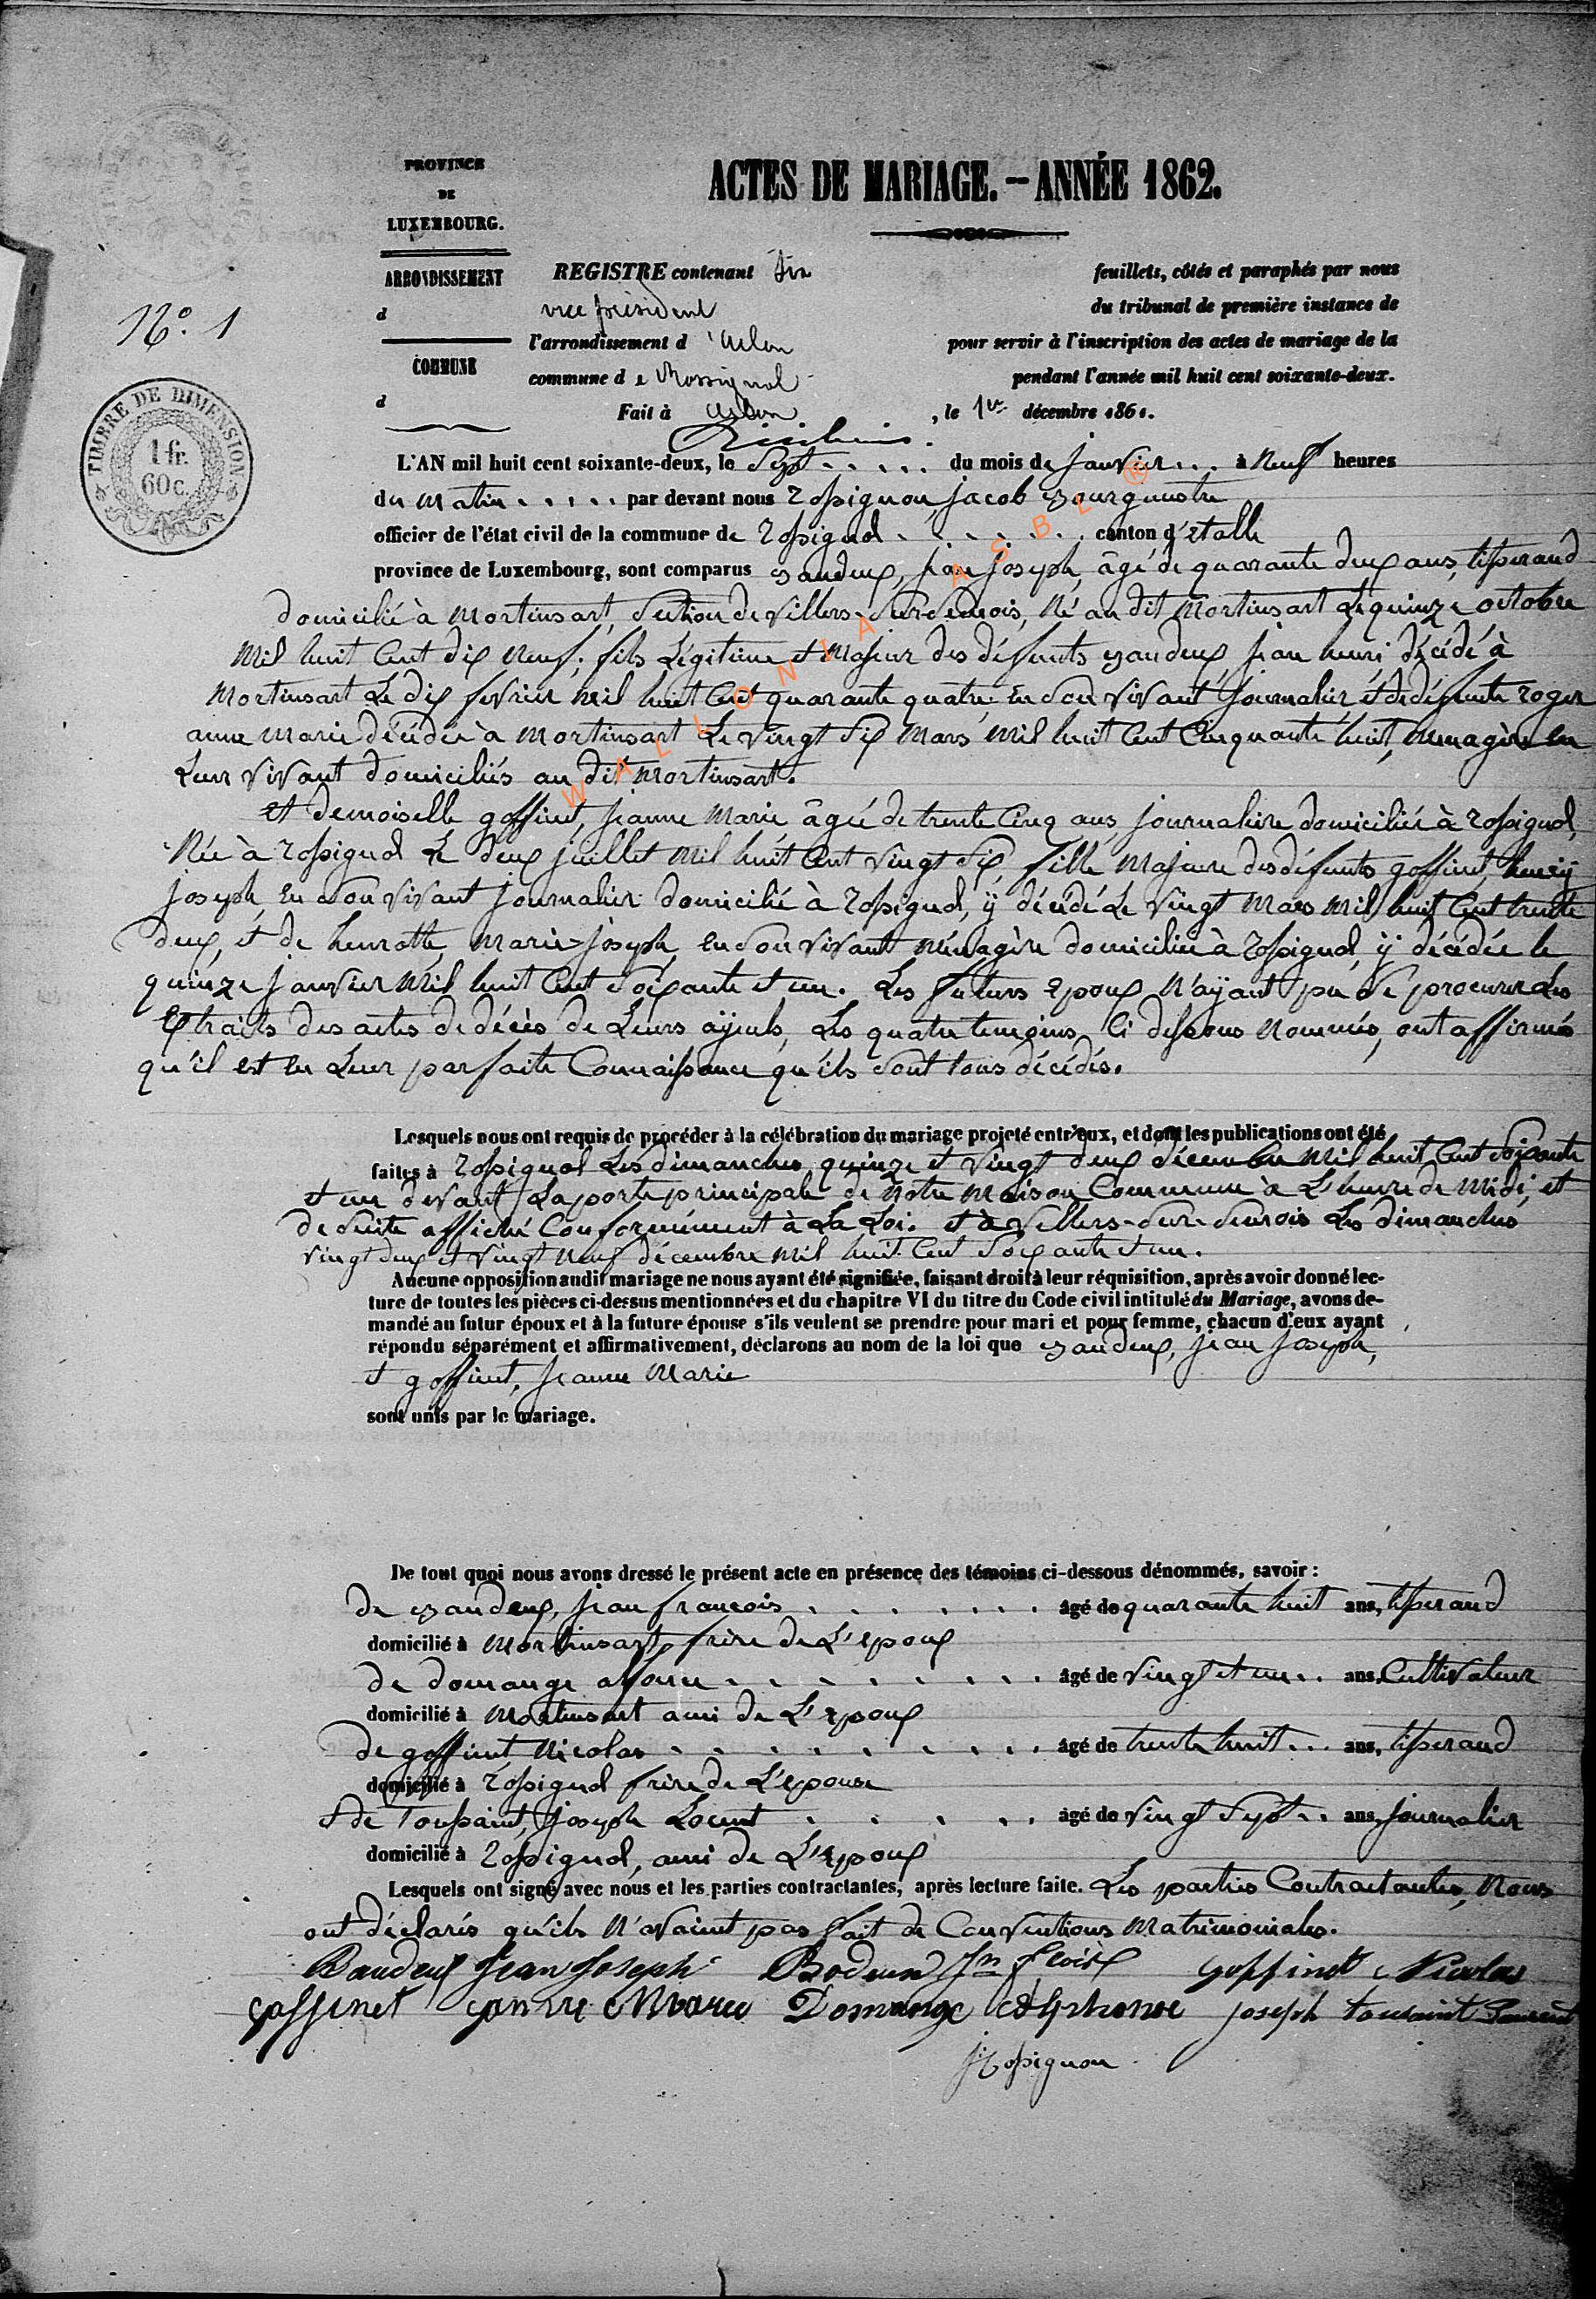 PROVINCE
DE
LUXEMBOURG.
ACTES DE MARIAGE. – ANNÉE 1862.
ARRONDISSEMENT
d
COMMUNE
d
N°. 1
TIMBRE DE DIMENSION
1 fr.
60 c.
REGISTRE contenant six feuillets, côtés et paraphés par nous
vice président du tribunal de première instance de
l'arrondissement d'Arlon pour servir à l'inscription des actes de mariage de la
commune de Rossignol pendant l'année mil huit cent soixante-deux.
Fait à Arlon, le 1er décembre 1861.
L'AN mil huit cent soixante-deux, le Sept . . . . . du mois de janvier . . . à Neuf heures
du matin . . . . . par devant nous rossignon, jacob Bourgmestre
officier de l'état civil de la commune de rossignol . . . . . . . canton d'étalle
province de Luxembourg, sont comparus Baudeux, jean joseph, âgé de quarante deux ans, tisserand
domicilié à Mortinsart, Section de Villers-Sur-Semois, Né au dit Mortinsart Le quinze octobre
Mil huit Cent dix Neuf, fils Légitime et Majeur des défunts Baudeux jean henri décédé à
Mortinsart Le dix fevrier Mil huit Cent quarante quatre en Son Vivant journalier et de défunte roger
anne Marie décédée à Mortinsart Le Vingt Six Mars Mil huit Cent Cinquante huit, Menagère en
Leur Vivant domiciliés au dit Mortinsart.
et demoiselle goffinet, jeanne Marie âgée de trente Cinq ans journalière domiciliée à rossignol,
Née à rossignol Le deux juillet Mil huit Cent Vingt Six, fille Majeure des défunts goffinet, henry
joseph en Son Vivant journalier domicilié à rossignol, ÿ décédé Le Vingt Mars Mil huit Cent trente
deux, et de henrotte, Marie-joseph, en Son Vivant Ménagère domiciliée à rossignol, ÿ décédée le
quinze janvier Mil huit Cent Soixante et un. Les futurs Epoux N'aÿant pu Se procurer Les
Extraits des actes de décès de Leurs aÿeuls, Les quatre temoins Ci dessous Nommés, ont affirmés
qu'il est en Leur parfaite Connaissance qu'ils Sont tous décédés.
Lesquels nous ont requis de procéder à la célébration du mariage projeté entr'eux, et dont les publications ont été
faites à rossignol Les dimanches quinze et Vingt deux décembre Mil huit Cent Soixante
et un devant La porte principale de Notre Maison Commune à L'heure de Midi, et
de Suite affiché Conformément à La Loi. et à Villers-Sur-Semois Les dimanches
Vingt deux et Vingt Neuf décembre Mil huit Cent Soixante et un.
Aucune opposition audit mariage ne nous ayant été signifiée, faisant droit à leur réquisition, après avoir donné lec-
ture de toutes les pièces ci-dessus mentionnées et du chapitre VI du titre du Code civil intitulé du Mariage, avons de-
mandé au futur époux et à la future épouse s'ils veulent se prendre pour mari et pour femme, chacun d'eux ayant
répondu séparément et affirmativement, déclarons au nom de la loi que Baudeux, jean joseph,
et goffinet, jeanne Marie
sont unis par le mariage.
De tout quoi nous avons dressé le présent acte en présence des témoins ci-dessous dénommés, savoir :
de Baudeux, jean francois . . . . . . . âgé de quarante huit ans, tisserand
domicilié à Mortinsart, frère de L'epoux
de domange . . . . . . . . âgé de Vingt et un . . ans, Cultivateur
domicilié à Mortinsart ami de L'epoux
de goffinet, Nicolas . . . . . . . . âgé de trente huit . . . ans, tisserand
domicilié à rossignol frère de L'epouse
et de Toussaint, joseph Lorent . . . . . âgé de Vingt Sept . . ans, journalier
domicilié à rossignol, ami de L'epoux
Lesquels ont signé avec nous et les parties contractantes, après lecture faite. Les parties Contractantes, Nous
ont déclarés qu'ils N'avaient pas fait de Conventions Matrimoniales.
Baudeux Jean Joseph Jn goffinet Nicolas
goffinet Marie Domange Alphonse joseph toussaint
J rossignon
WALLONIA ASBL ®